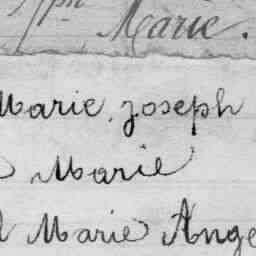 Marie.
Marie, joseph
Marie
Marie Ange